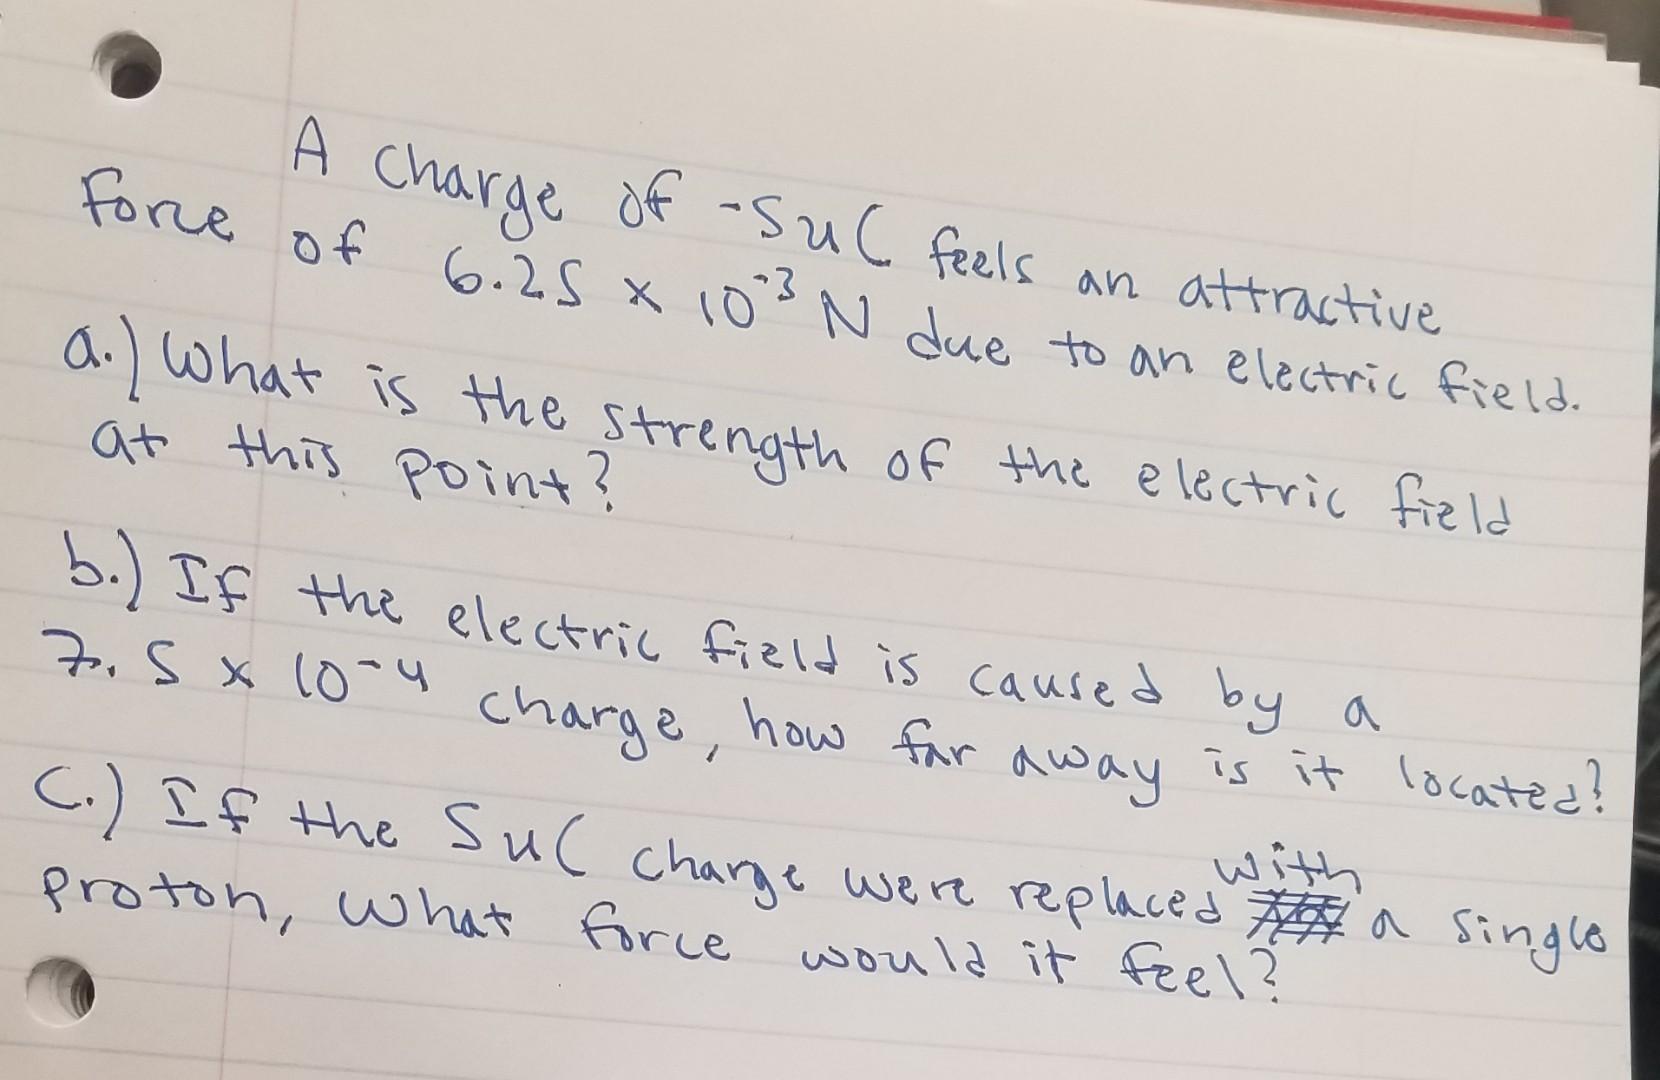 A charge of -5uC feels an attractive
force of 6.25 x 10^-3 N due to an electric field.
a.) What is the strength of the electric field
at this point?
b.) If the electric field is caused by a
7.5 x 10^-4 charge, how far away is it located?
C.) If the 5uC charge were replaced with a single
proton, what force would it feel?